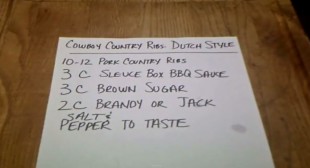 COWBOY COUNTRY RIBS DUTCH STYLE
10-12 PORK COUNTRY RIBS
3 C SLEUCE BOX BBQ SAUCE
3 C BROWN SUGAR
2 C BRANDY OR JACK
SALT &
PEPPER TO TASTE